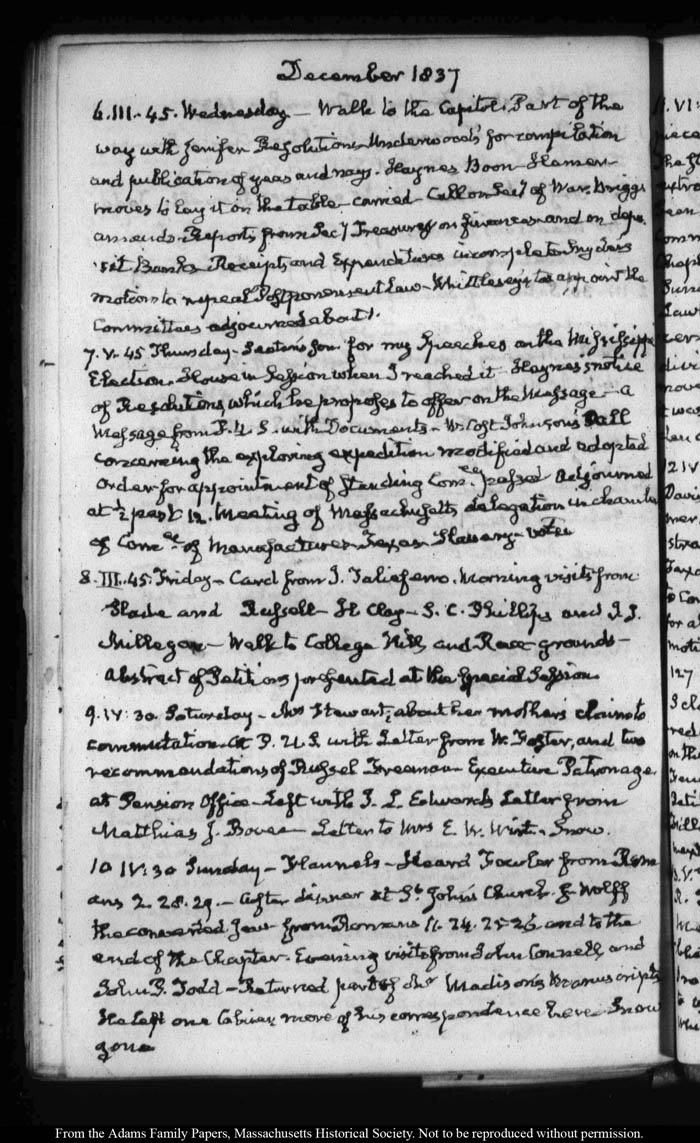 December 1837
6. III. 45. Wednesday — Walk to the Capitol. Part of the
way with Jenifer Resolutions Underwood's for compilation
and publication of yeas and nays. Haynes Boon Hamer
moves to lay it on the table — carried — Call on Secy of War. Briggs
amends. Reports from Secy Treasury on finances and on depo
sit Banks. Receipts and Expenditures incomplete. My
motion to repeal Postponement Law — Whittlesey's to appoint the
Committees adjourned about 1.
7. V. 45 Thursday — Seaton's son for my Speeches on the Mississippi
Election. House in Session when I reached it. Haynes's notice
of Resolutions which he proposes to offer on the Message — a
Message from P. U. S. with Documents — W. Cost Johnson's Call
concerning the exploring expedition modified and adopted
Order for appointment of standing Comees passed Adjourned
at ½ past 12. Meeting of Massachusetts delegation in chamber
of Comee of Manufactures — Texas Slavery — votes
8. III. 45. Friday — Card from J. Taliaferro. Morning visits from
Slade and Russell — H Clay — S. C. Phillips and J. J.
Milligan — Walk to College Hill and Race grounds —
Abstract of Petitions presented at the Special Session.
9. IV: 30 Saturday — Mrs Stewart, about her mother's claim to
commutation. At P. U. S. with Letter from W. Foster, and two
recommendations of Russel Freeman — Executive Patronage.
at Pension Office — Left with J. L. Edwards Letter from
Matthias J. — Letter to Mrs E. W. Wirt. Snow.
10 IV: 30 Sunday — Flannels — Heard Fowler from Rom
ans 2. 28. 29. — After dinner at St John's Church. J Wolff
the converted Jew from Romans 11. 24. 25-26 and to the
end of the Chapter. Evening visits from John Connell and
John P. Todd — Returned part of Mrs Madison's Manuscripts
He left one volume more of his correspondence here. Snow
gone
From the Adams Family Papers, Massachusetts Historical Society. Not to be reproduced without permission.